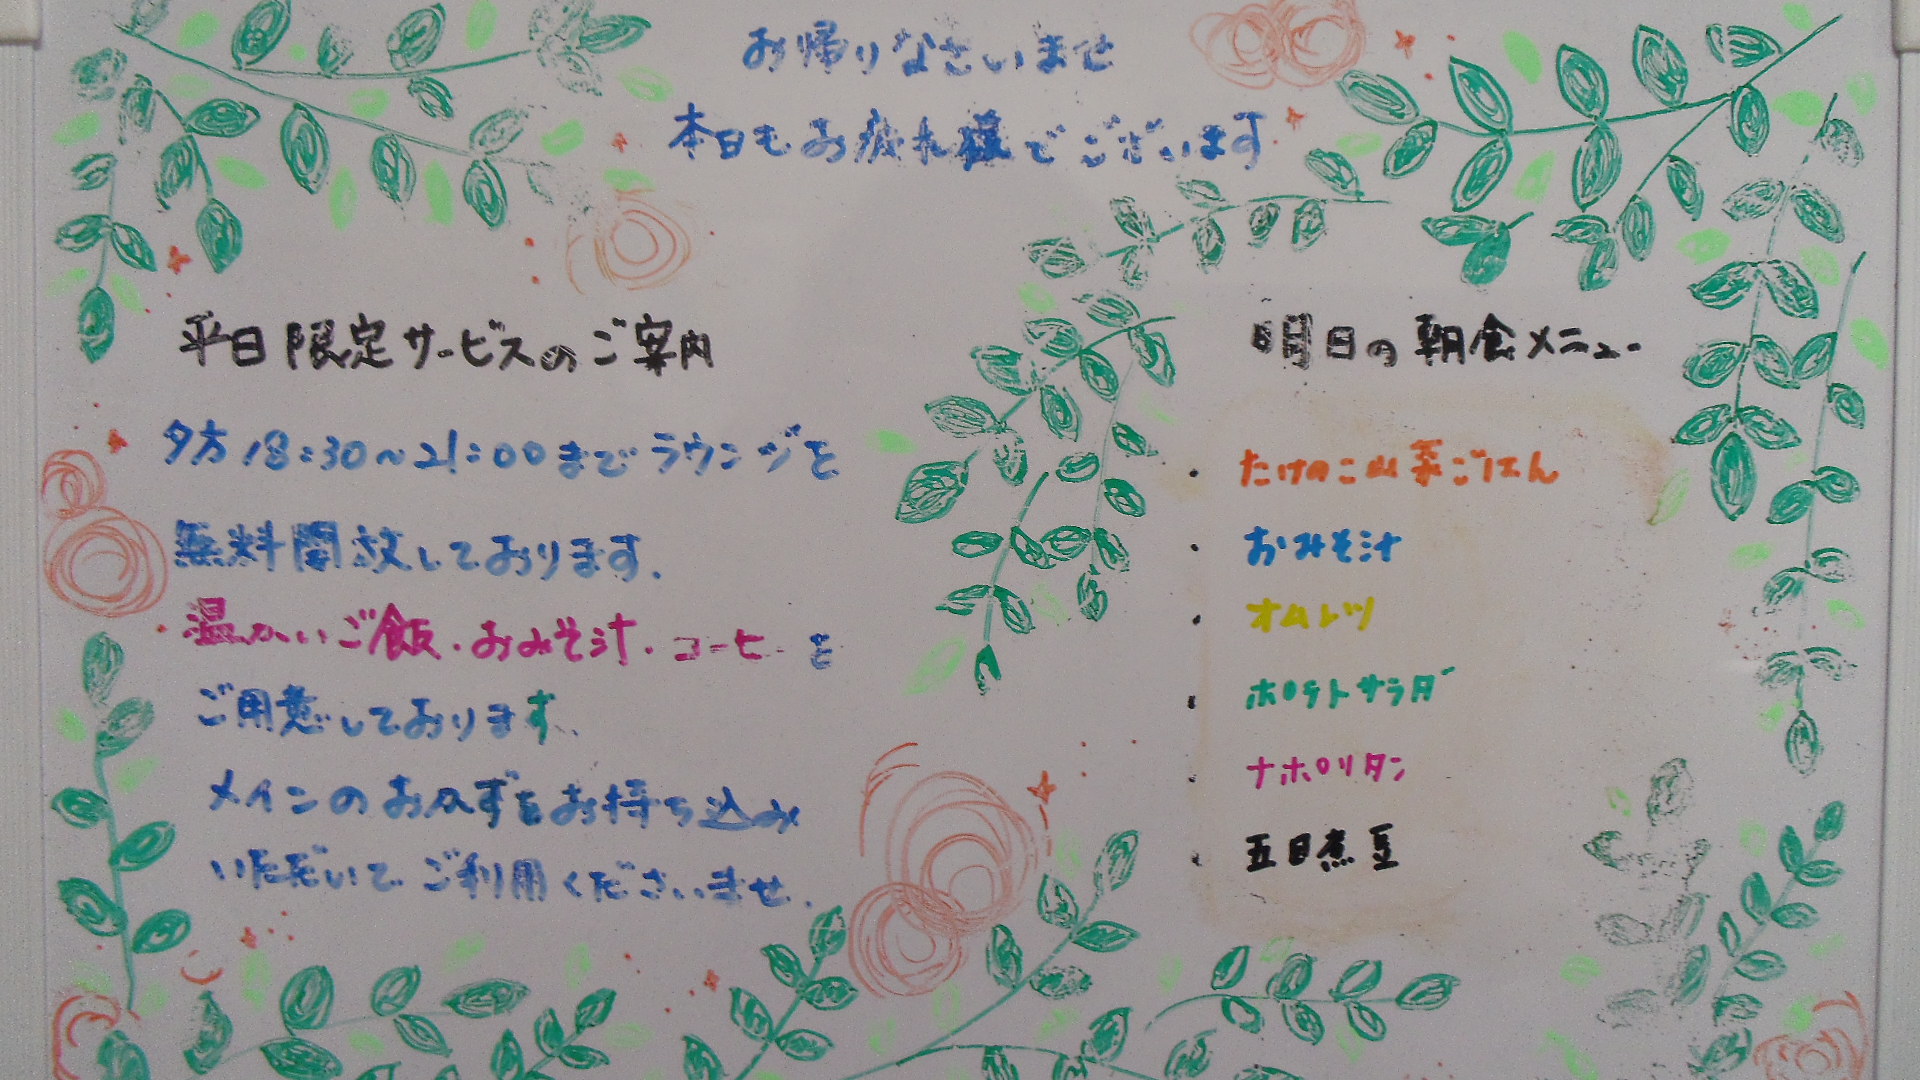 お帰りなさいませ
本日もお疲れ様でございます
平日限定サービスのご案内
夕方18:30〜21:00までラウンジを
無料開放しております.
温かいご飯・おみそ汁・コーヒーを
ご用意しております.
メインのおかずをお持ち込み
いただいてご利用くださいませ.
明日の朝食メニュー
・たけのこ山菜ごはん
・おみそ汁
・オムレツ
・ポテトサラダ
・ナポリタン
・五目煮豆